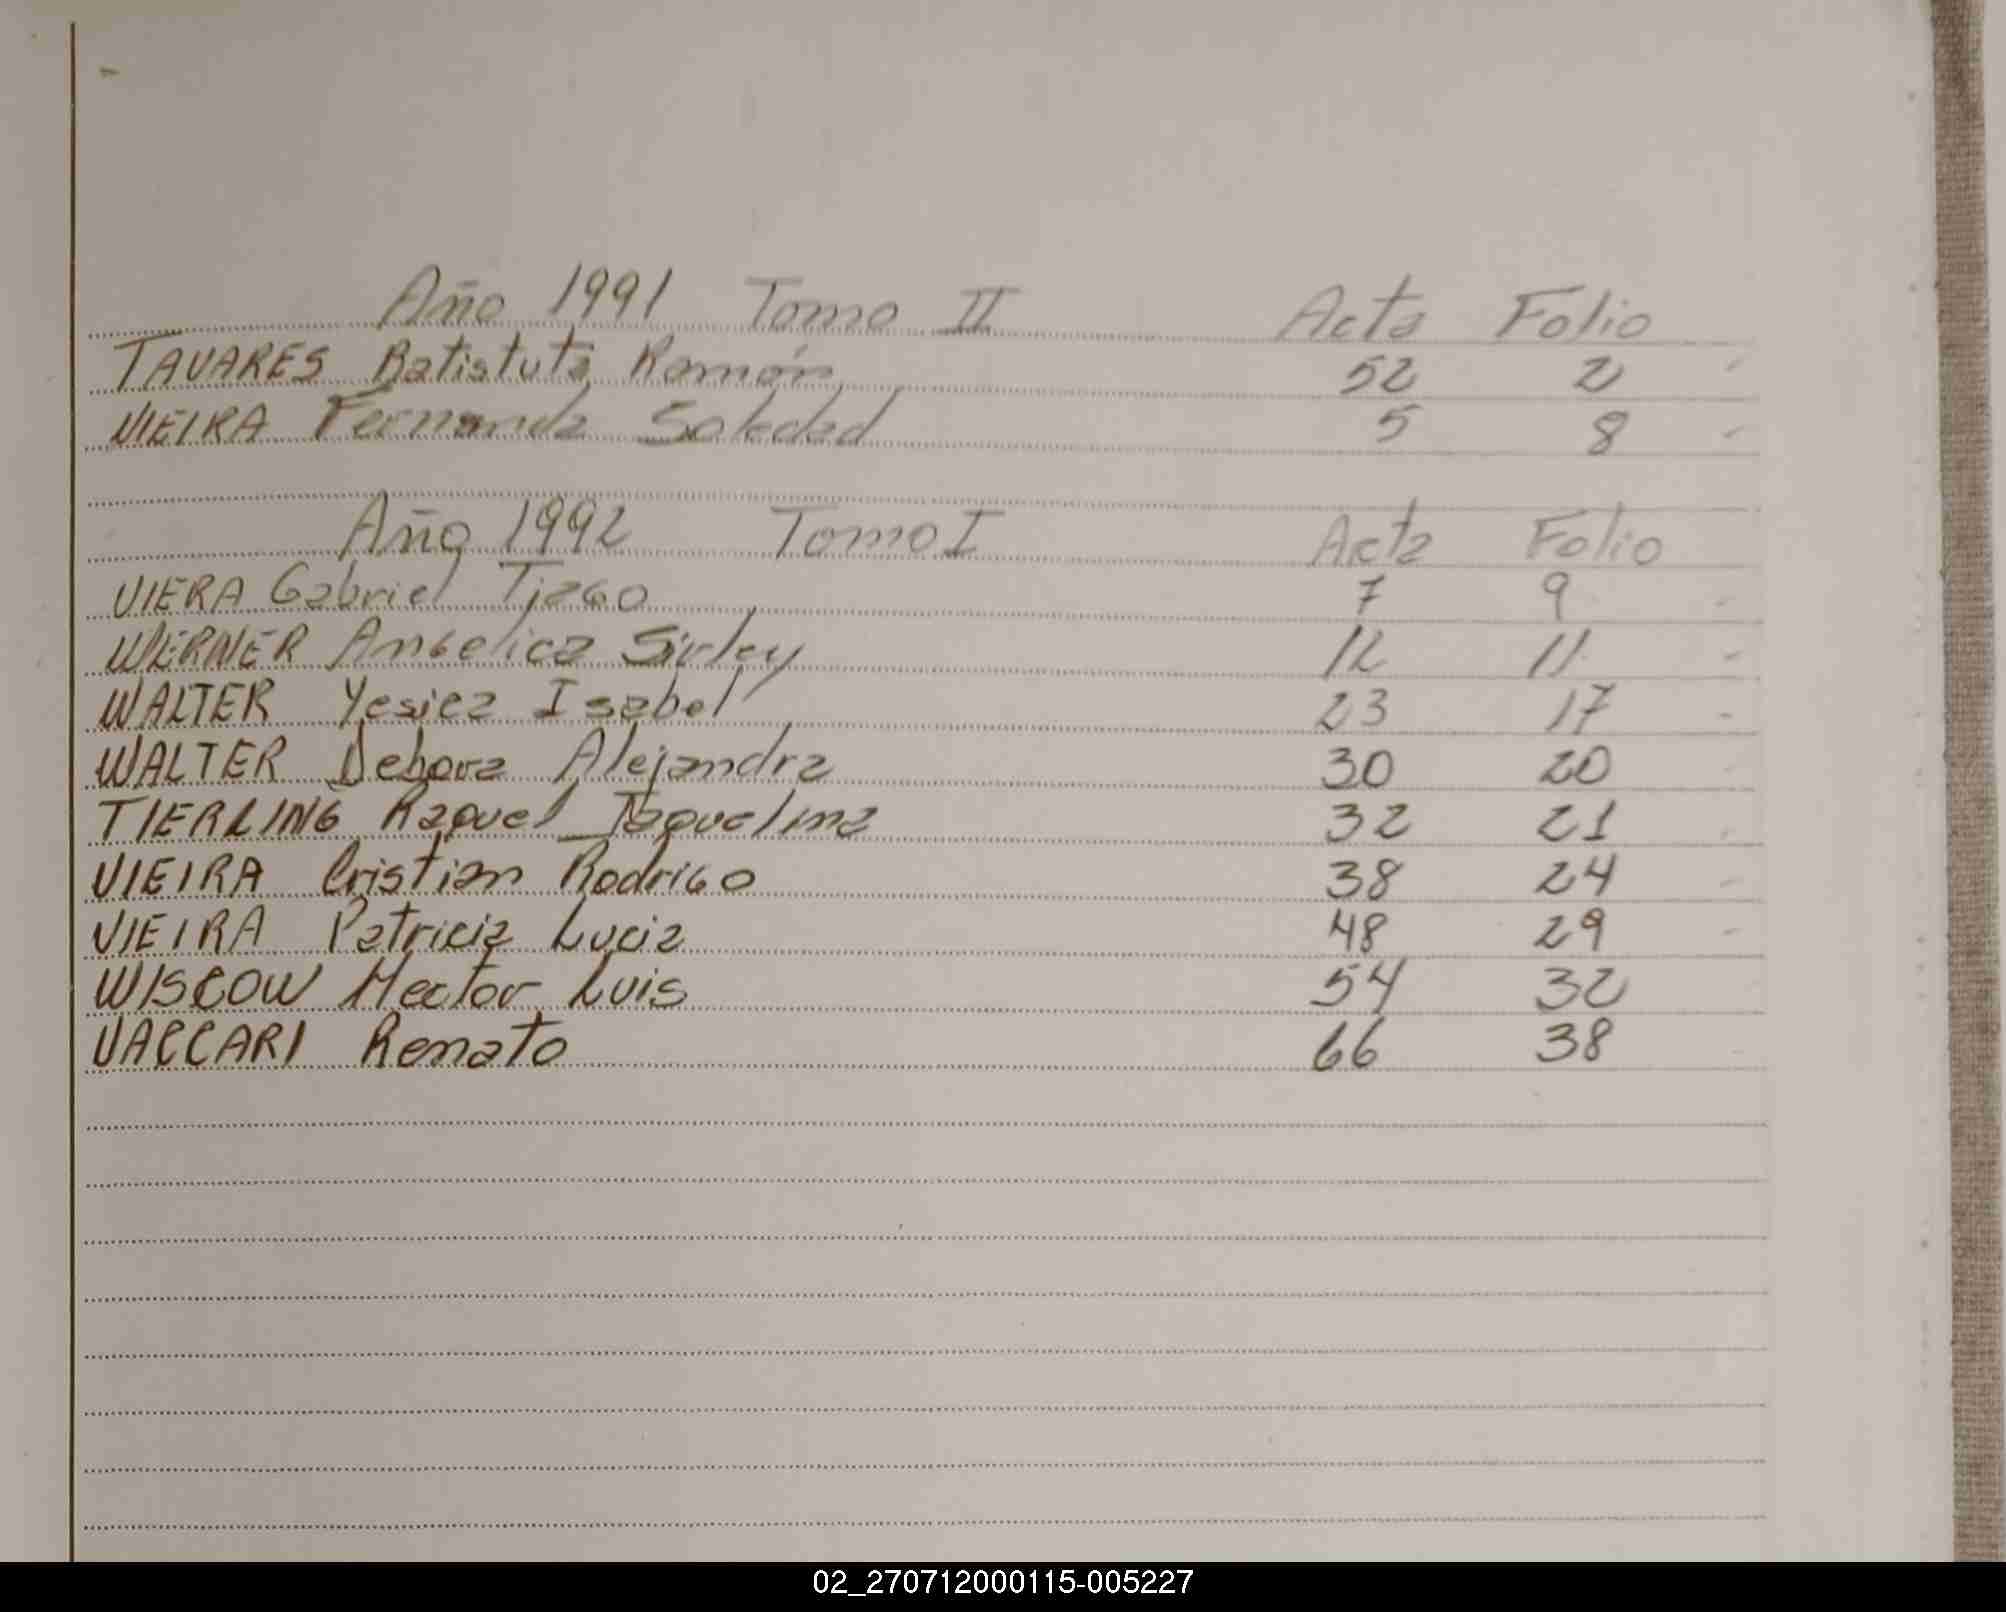 Año 1991 Tomo II Acta Folio
TAVARES Batistuta Ramón 52 2
VIEIRA Fernanda Soledad 5 8
Año 1992 Tomo I Acta Folio
VIERA Gabriel Tjago 7 9
WERNER Angelica Sirley 12 11
WALTER Yesica Isabel 23 17
WALTER Debora Alejandra 30 20
TIERLING Raquel Jaquelina 32 21
VIEIRA Cristian Rodrigo 38 24
VIEIRA Patricia Lucia 48 29
WISCOW Hector Luis 54 32
VACCARI Renato 66 38
02_270712000115-005227